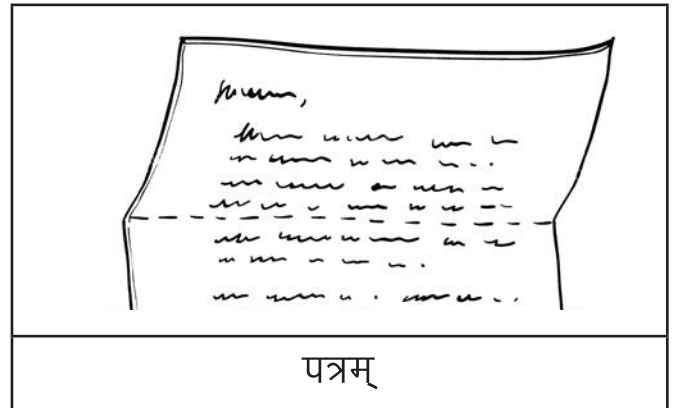 पत्रम्